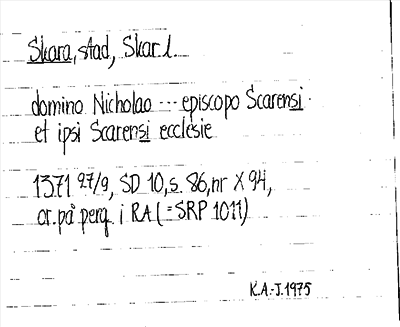 Skara, stad, Skar. l.
domino Nicholao --- episcopo Scarensi
et ipsi Scarensi ecclesie
1371 27/9, SD 10, s. 86, nr X 94,
or. på perg. i RA (= SRP 1011)
K.A.-J. 1975